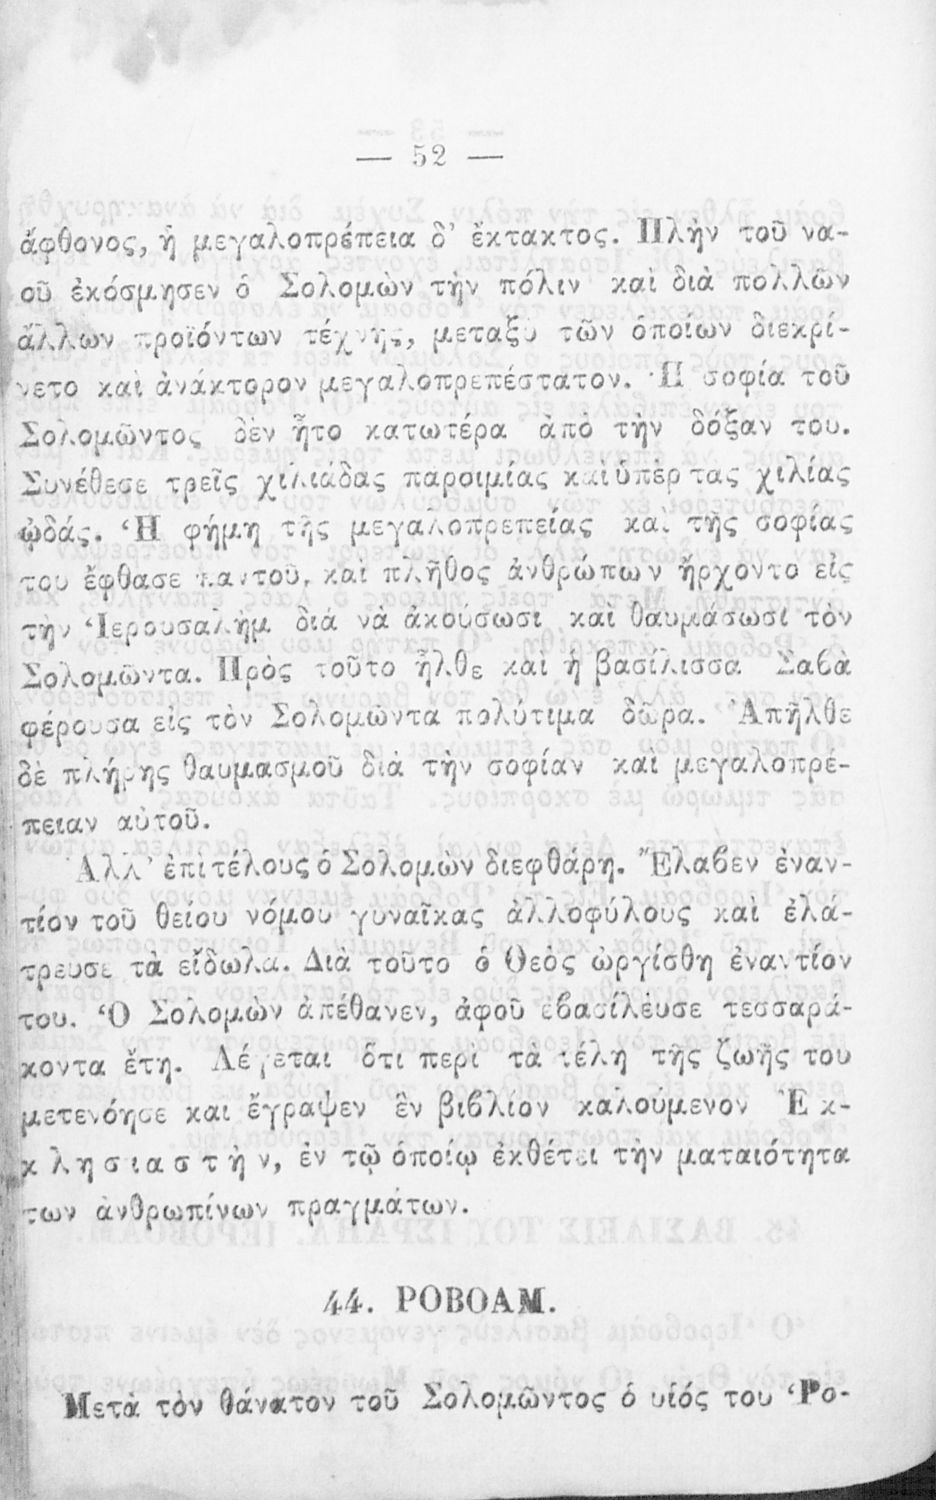 — 52 —
ἄφθονος, ἡ μεγαλοπρέπεια δ’ ἔκτακτος. Πλὴν τοῦ να-
οῦ ἐκόσμησεν ὁ Σολομὼν τὴν πόλιν καὶ διὰ πολλῶν
ἄλλων προϊόντων τέχνης, μεταξὺ τῶν ὁποίων διεκρί-
νετο καὶ ἀνάκτορον μεγαλοπρεπέστατον. Ἡ σοφία τοῦ
Σολομῶντος δὲν ἦτο κατωτέρα ἀπὸ τὴν δόξαν του.
Συνέθεσε τρεῖς χιλιάδας παροιμίας καὶ ὑπὲρ τας χιλίας
ᾠδάς. Ἡ φήμη τῆς μεγαλοπρεπείας καὶ τῆς σοφίας
του ἔφθασε παντοῦ, καὶ πλῆθος ἀνθρώπων ἤρχοντο εἰς
τὴν Ἱερουσαλὴμ διὰ νὰ ἀκούσωσι καὶ θαυμάσωσι τὸν
Σολομῶντα. Πρὸς τοῦτο ἦλθε καὶ ἡ βασίλισσα Σαβὰ
φέρουσα εἰς τὸν Σολομῶντα πολύτιμα δῶρα. Ἀπῆλθε
δὲ πλήρης θαυμασμοῦ διὰ τὴν σοφίαν καὶ μεγαλοπρέ-
πειαν αὐτοῦ.
Ἀλλ’ ἐπιτέλους ὁ Σολομὼν διεφθάρη. Ἔλαβεν ἐναν-
τίον τοῦ θείου νόμου γυναῖκας ἀλλοφύλους καὶ ἐλά-
τρευσε τὰ εἴδωλα. Διὰ τοῦτο ὁ Θεὸς ὠργίσθη ἐναντίον
του. Ὁ Σολομὼν ἀπέθανεν, ἀφοῦ ἐβασίλευσε τεσσαρά-
κοντα ἔτη. Λέγεται ὅτι περὶ τὰ τέλη τῆς ζωῆς του
μετενόησε καὶ ἔγραψεν ἓν βιβλίον καλούμενον Ἐκ-
κλησιαστὴν, ἐν τῷ ὁποίῳ ἐκθέτει τὴν ματαιότητα
των ἀνθρωπίνων πραγμάτων.
44. ΡΟΒΟΑΜ.
Μετὰ τὸν θάνατον τοῦ Σολομῶντος ὁ υἱός του Ῥο-